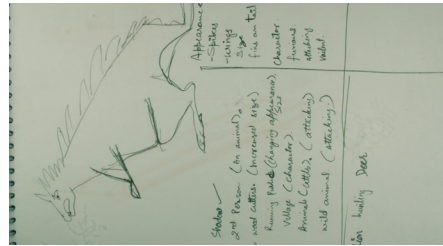 Appearance
- Spikes
- wings
size
fire on tail
Character
furious
attacking
violent.
Shadow
2nd Person (An animal).
wood cutters (Increased size)
Running Path (Changing appearance)
size
Village (character)
Animals (cattle). (attacking)
wild animal (attacking.)
hunting Deer